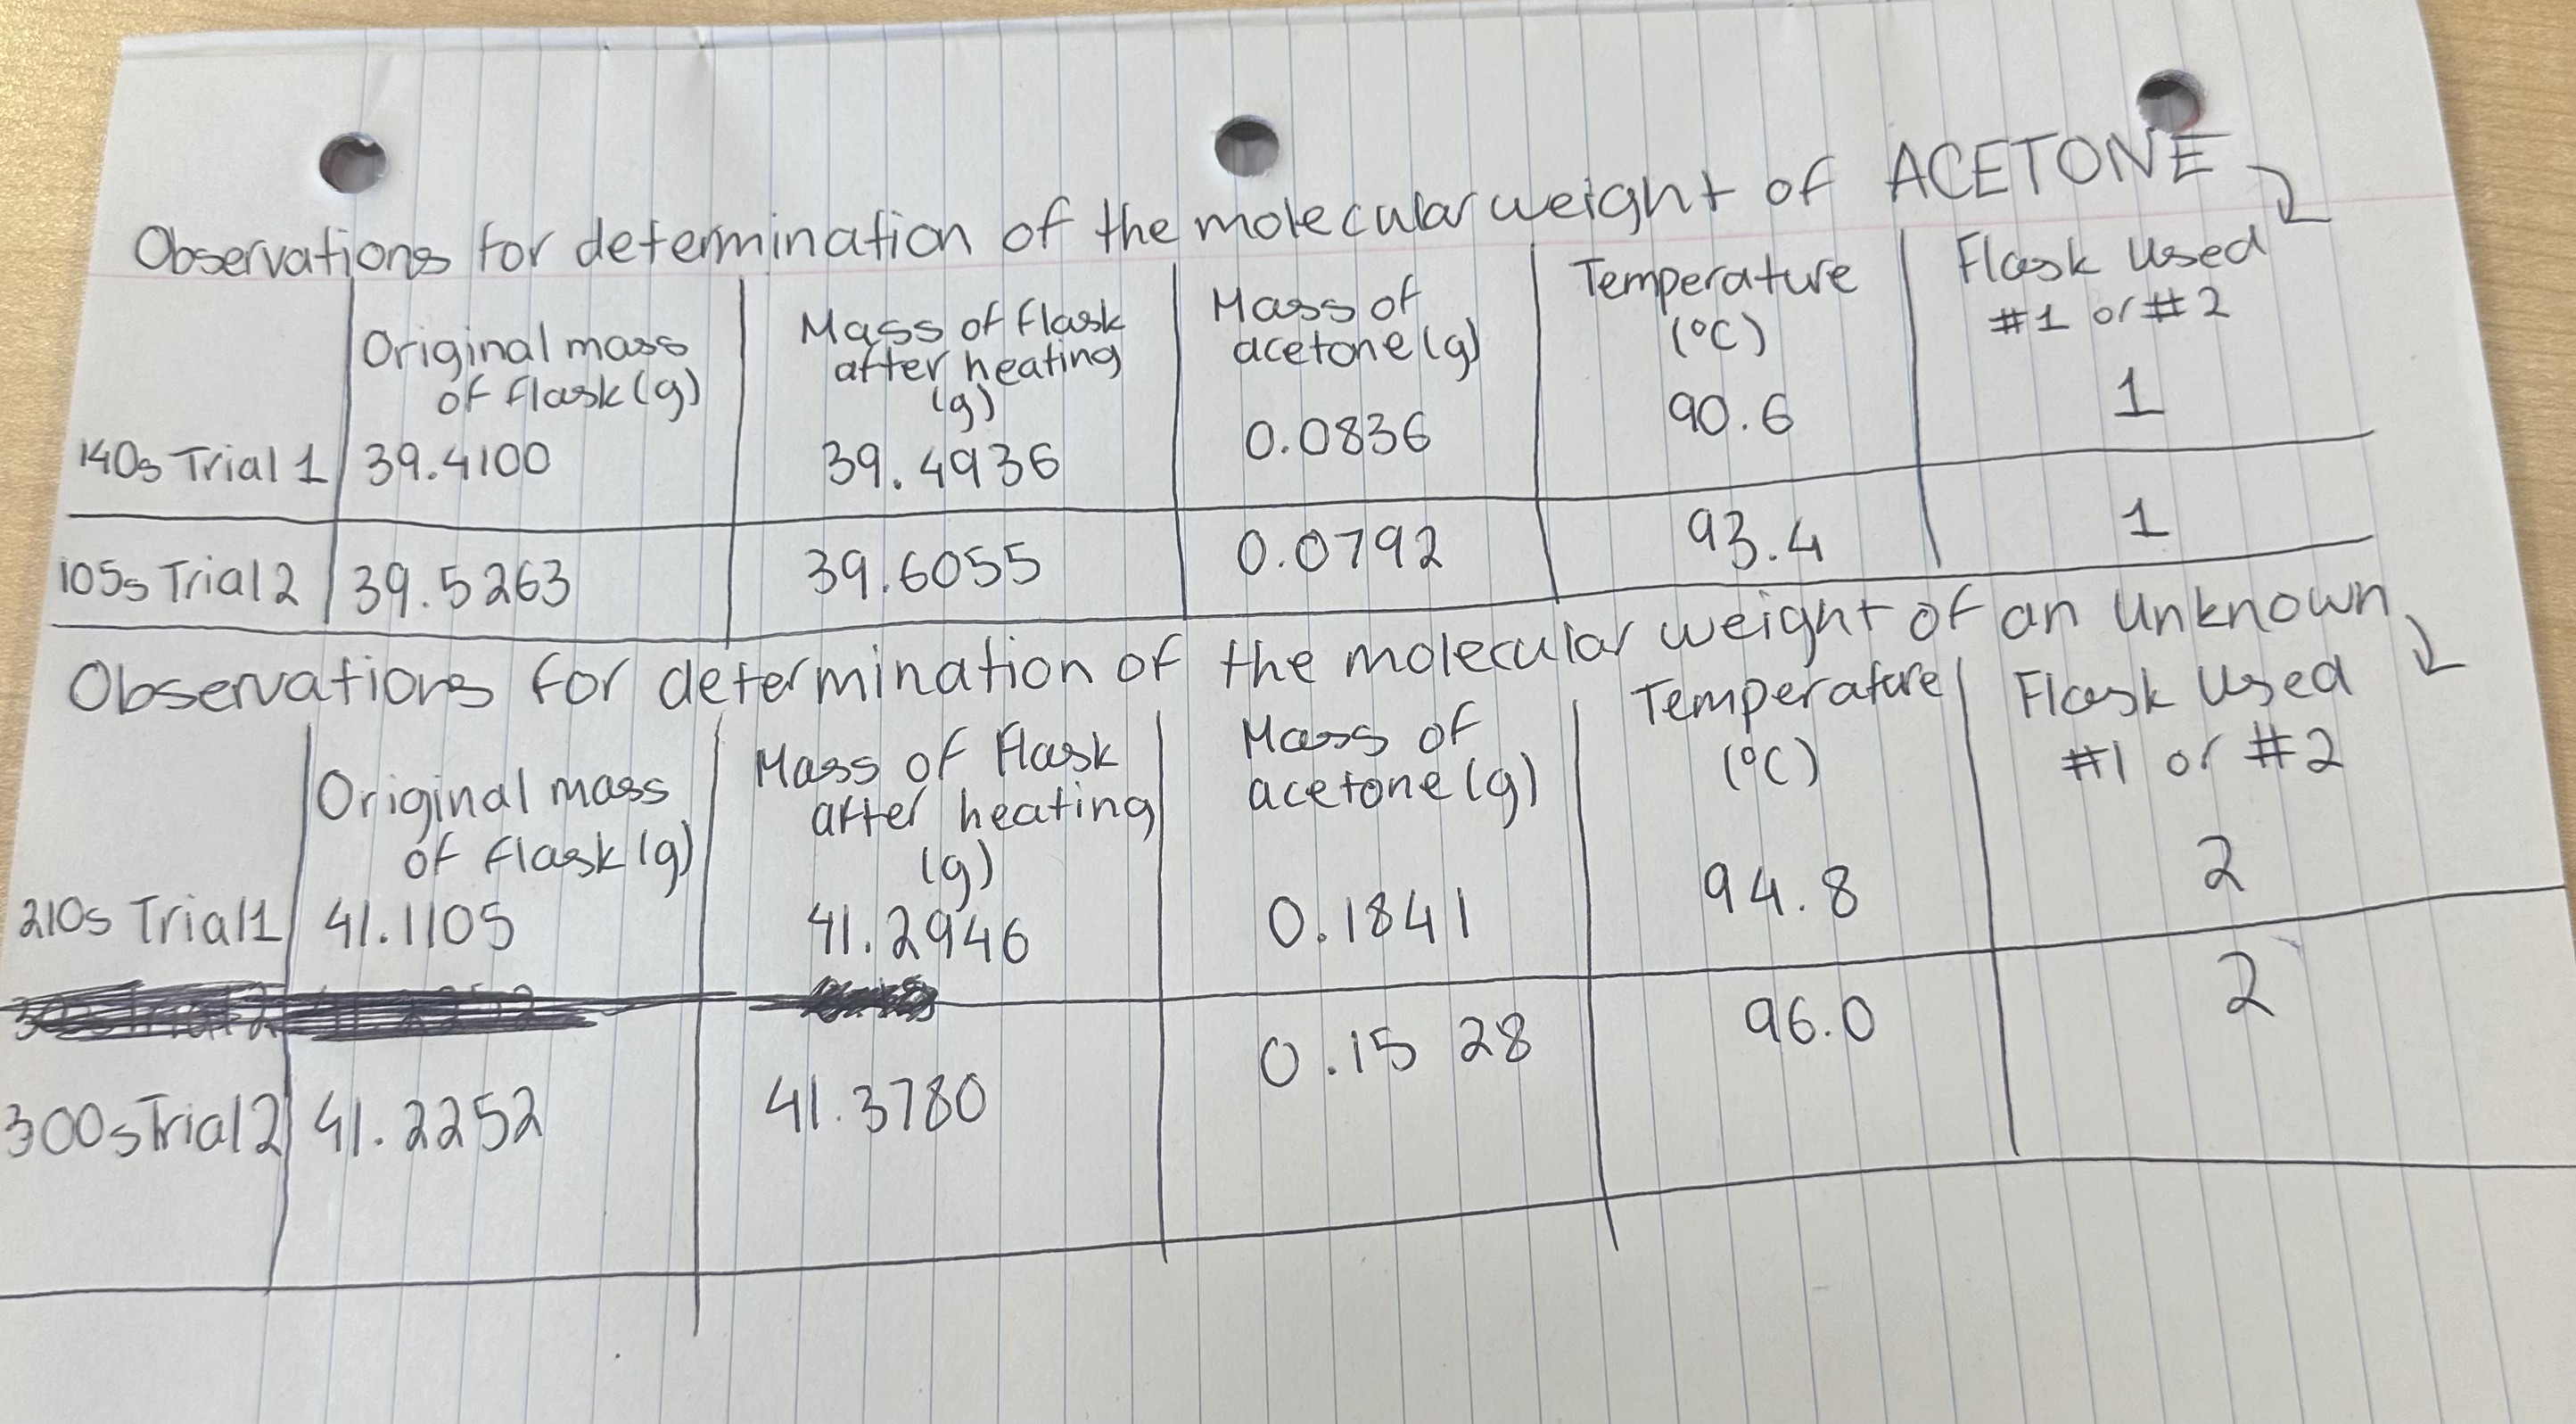 Observations for determination of the molecular weight of ACETONE
Original mass of flask (g)
Mass of flask after heating (g)
Mass of acetone (g)
Temperature (°C)
Flask Used #1 or #2
140s Trial 1 39.4100 39.4936 0.0836 90.6 1
105s Trial 2 39.5263 39.6055 0.0792 93.4 1
Observations for determination of the molecular weight of an Unknown
Original mass of flask (g)
Mass of Flask after heating (g)
Mass of acetone (g)
Temperature (°C)
Flask Used #1 or #2
210s Trial 1 41.1105 41.2946 0.1841 94.8 2
300s Trial 2 41.2252 41.3780 0.1528 96.0 2